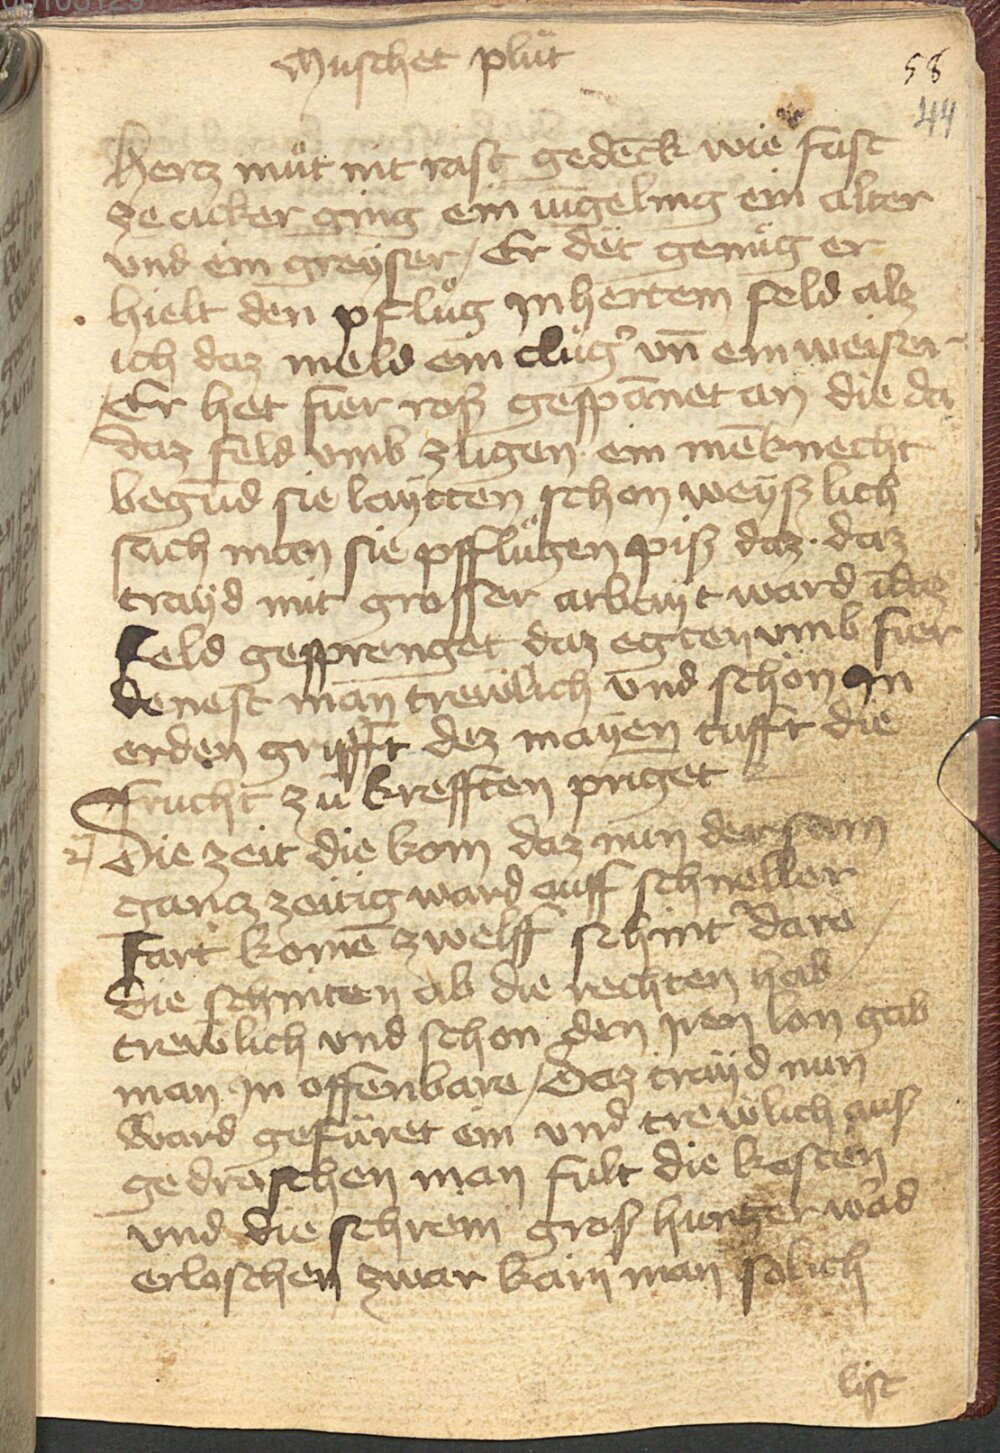 00105129
Muschet plüt
58
44
Hertz müt nit rast gedēck wie fast
ze acker ging ein iūgeling ein alter
vnd ein greyser / Er det genüg er
hielt den pflüg Jn hertem feld alz
ich daz meld ein clüg' vn̄ ein weiser
Er het fier roß gespānet an die da
daz feld vmb zugen ein mēknecht
begūd sie laytten schon weyßlich
sach man sie pfflügen piß daz daz
trayd mit grosser arbayt ward
feld gesprenget daz egten vmb fier
denest man trewlich vnd schon Jn
erden grufft dez mayen tufft die
frucht zü krefften pringet
2 Die zeit die kom daz nun der sam
gancz zeitig ward auff schneller
fart komē zwelff schnit dare
Die schniten ab die rechten hab
trewlich vnd schon den Jren lon gab
man Jn offenbare / Daz trayd nun
ward gefüret ein vnd trewlich auß
gedraschen man fult die kasten
vnd die schrein groß hunger wad
erloschen zwar kain man solich
list